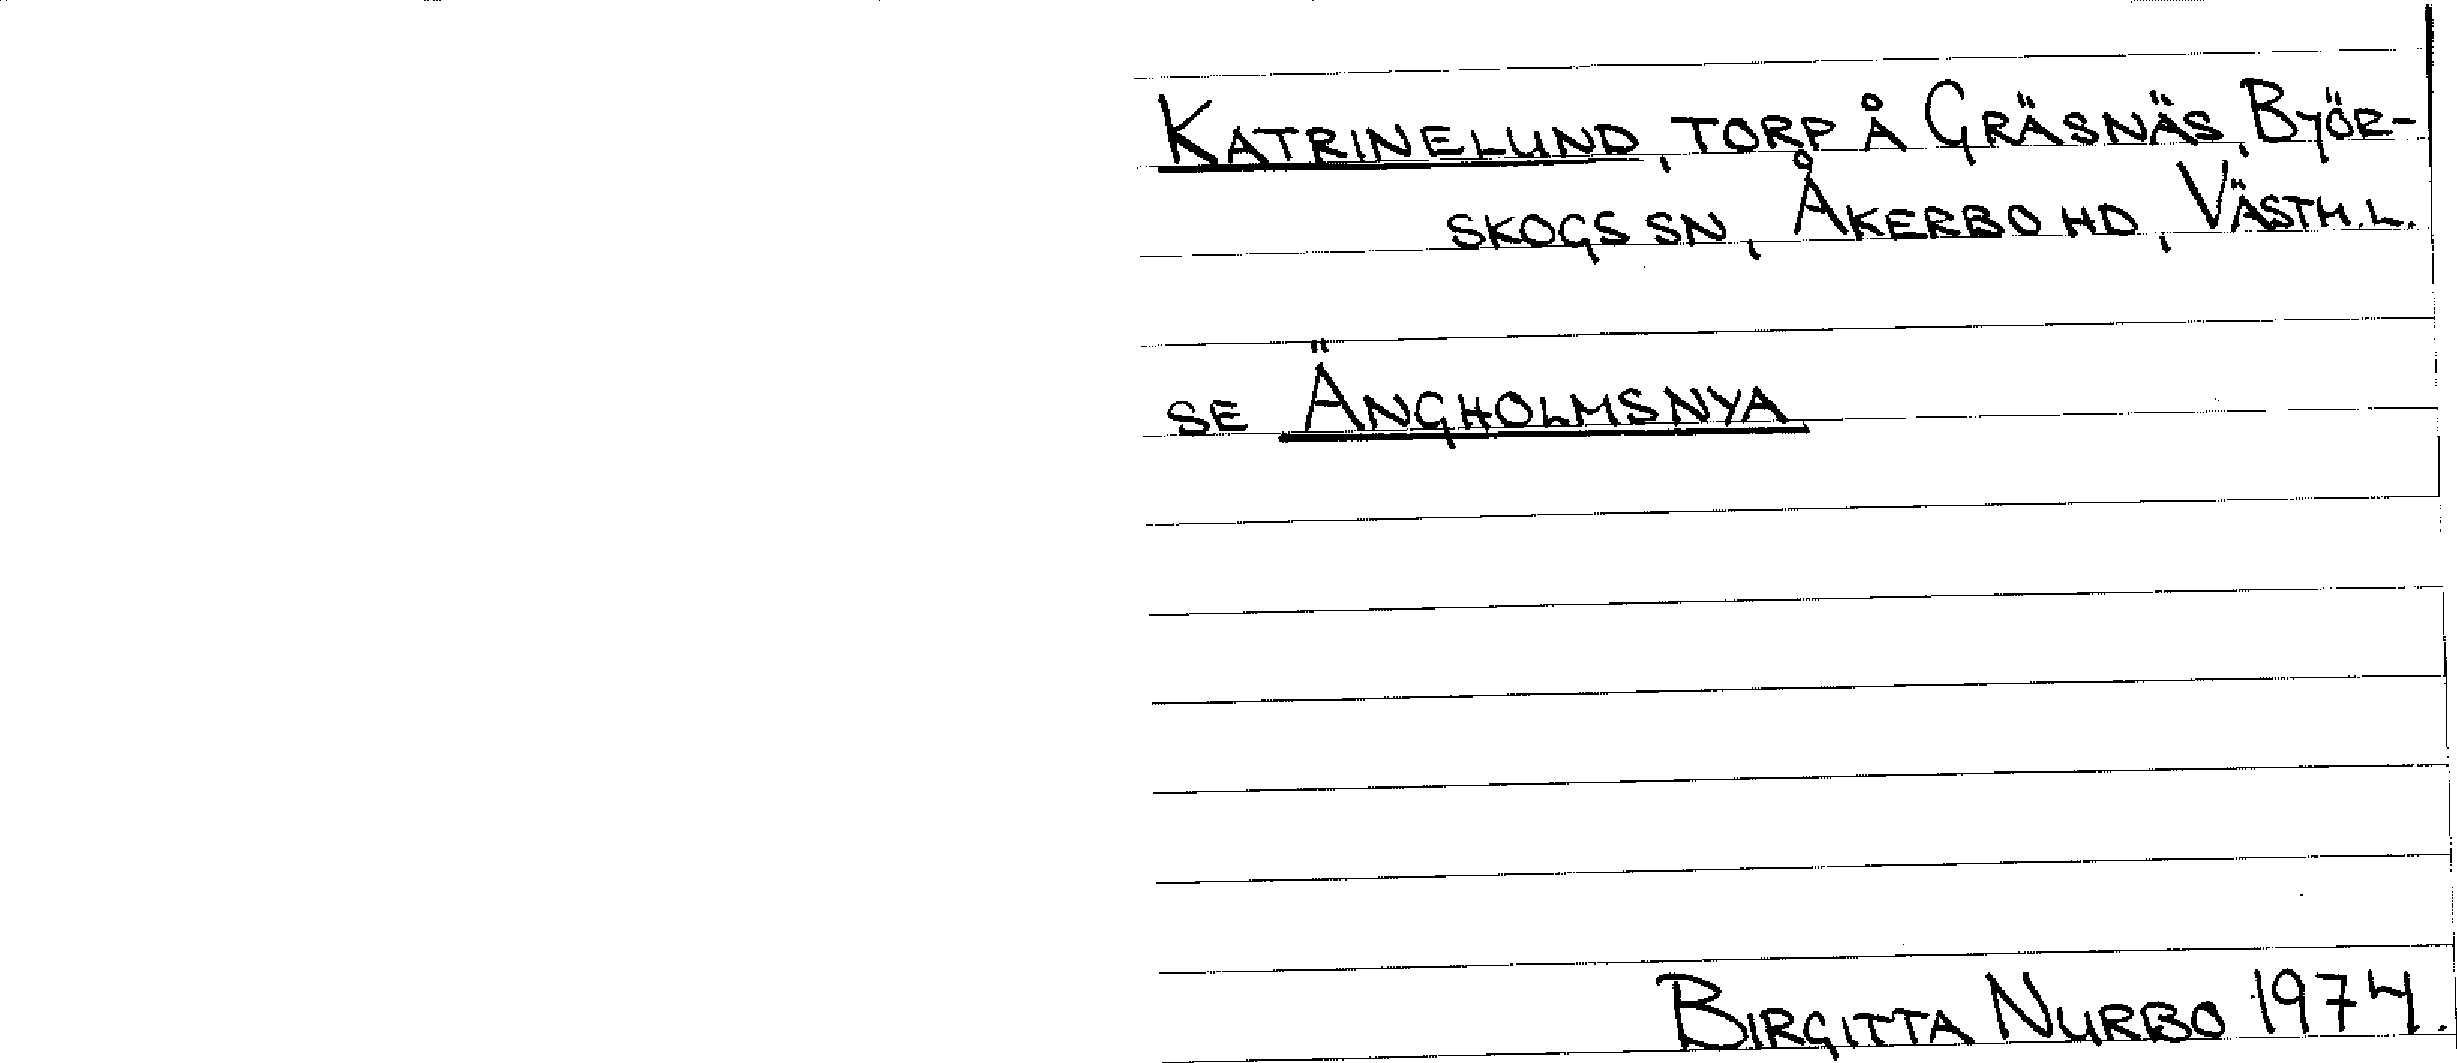 KATRINELUND, TORP Å GRÄSNÄS, BYÖR-
SKOGS SN, ÅKERBO HD, VÄSTM.L.
SE ÄNGHOLMSNYA
BIRGITTA NURBO 1974.